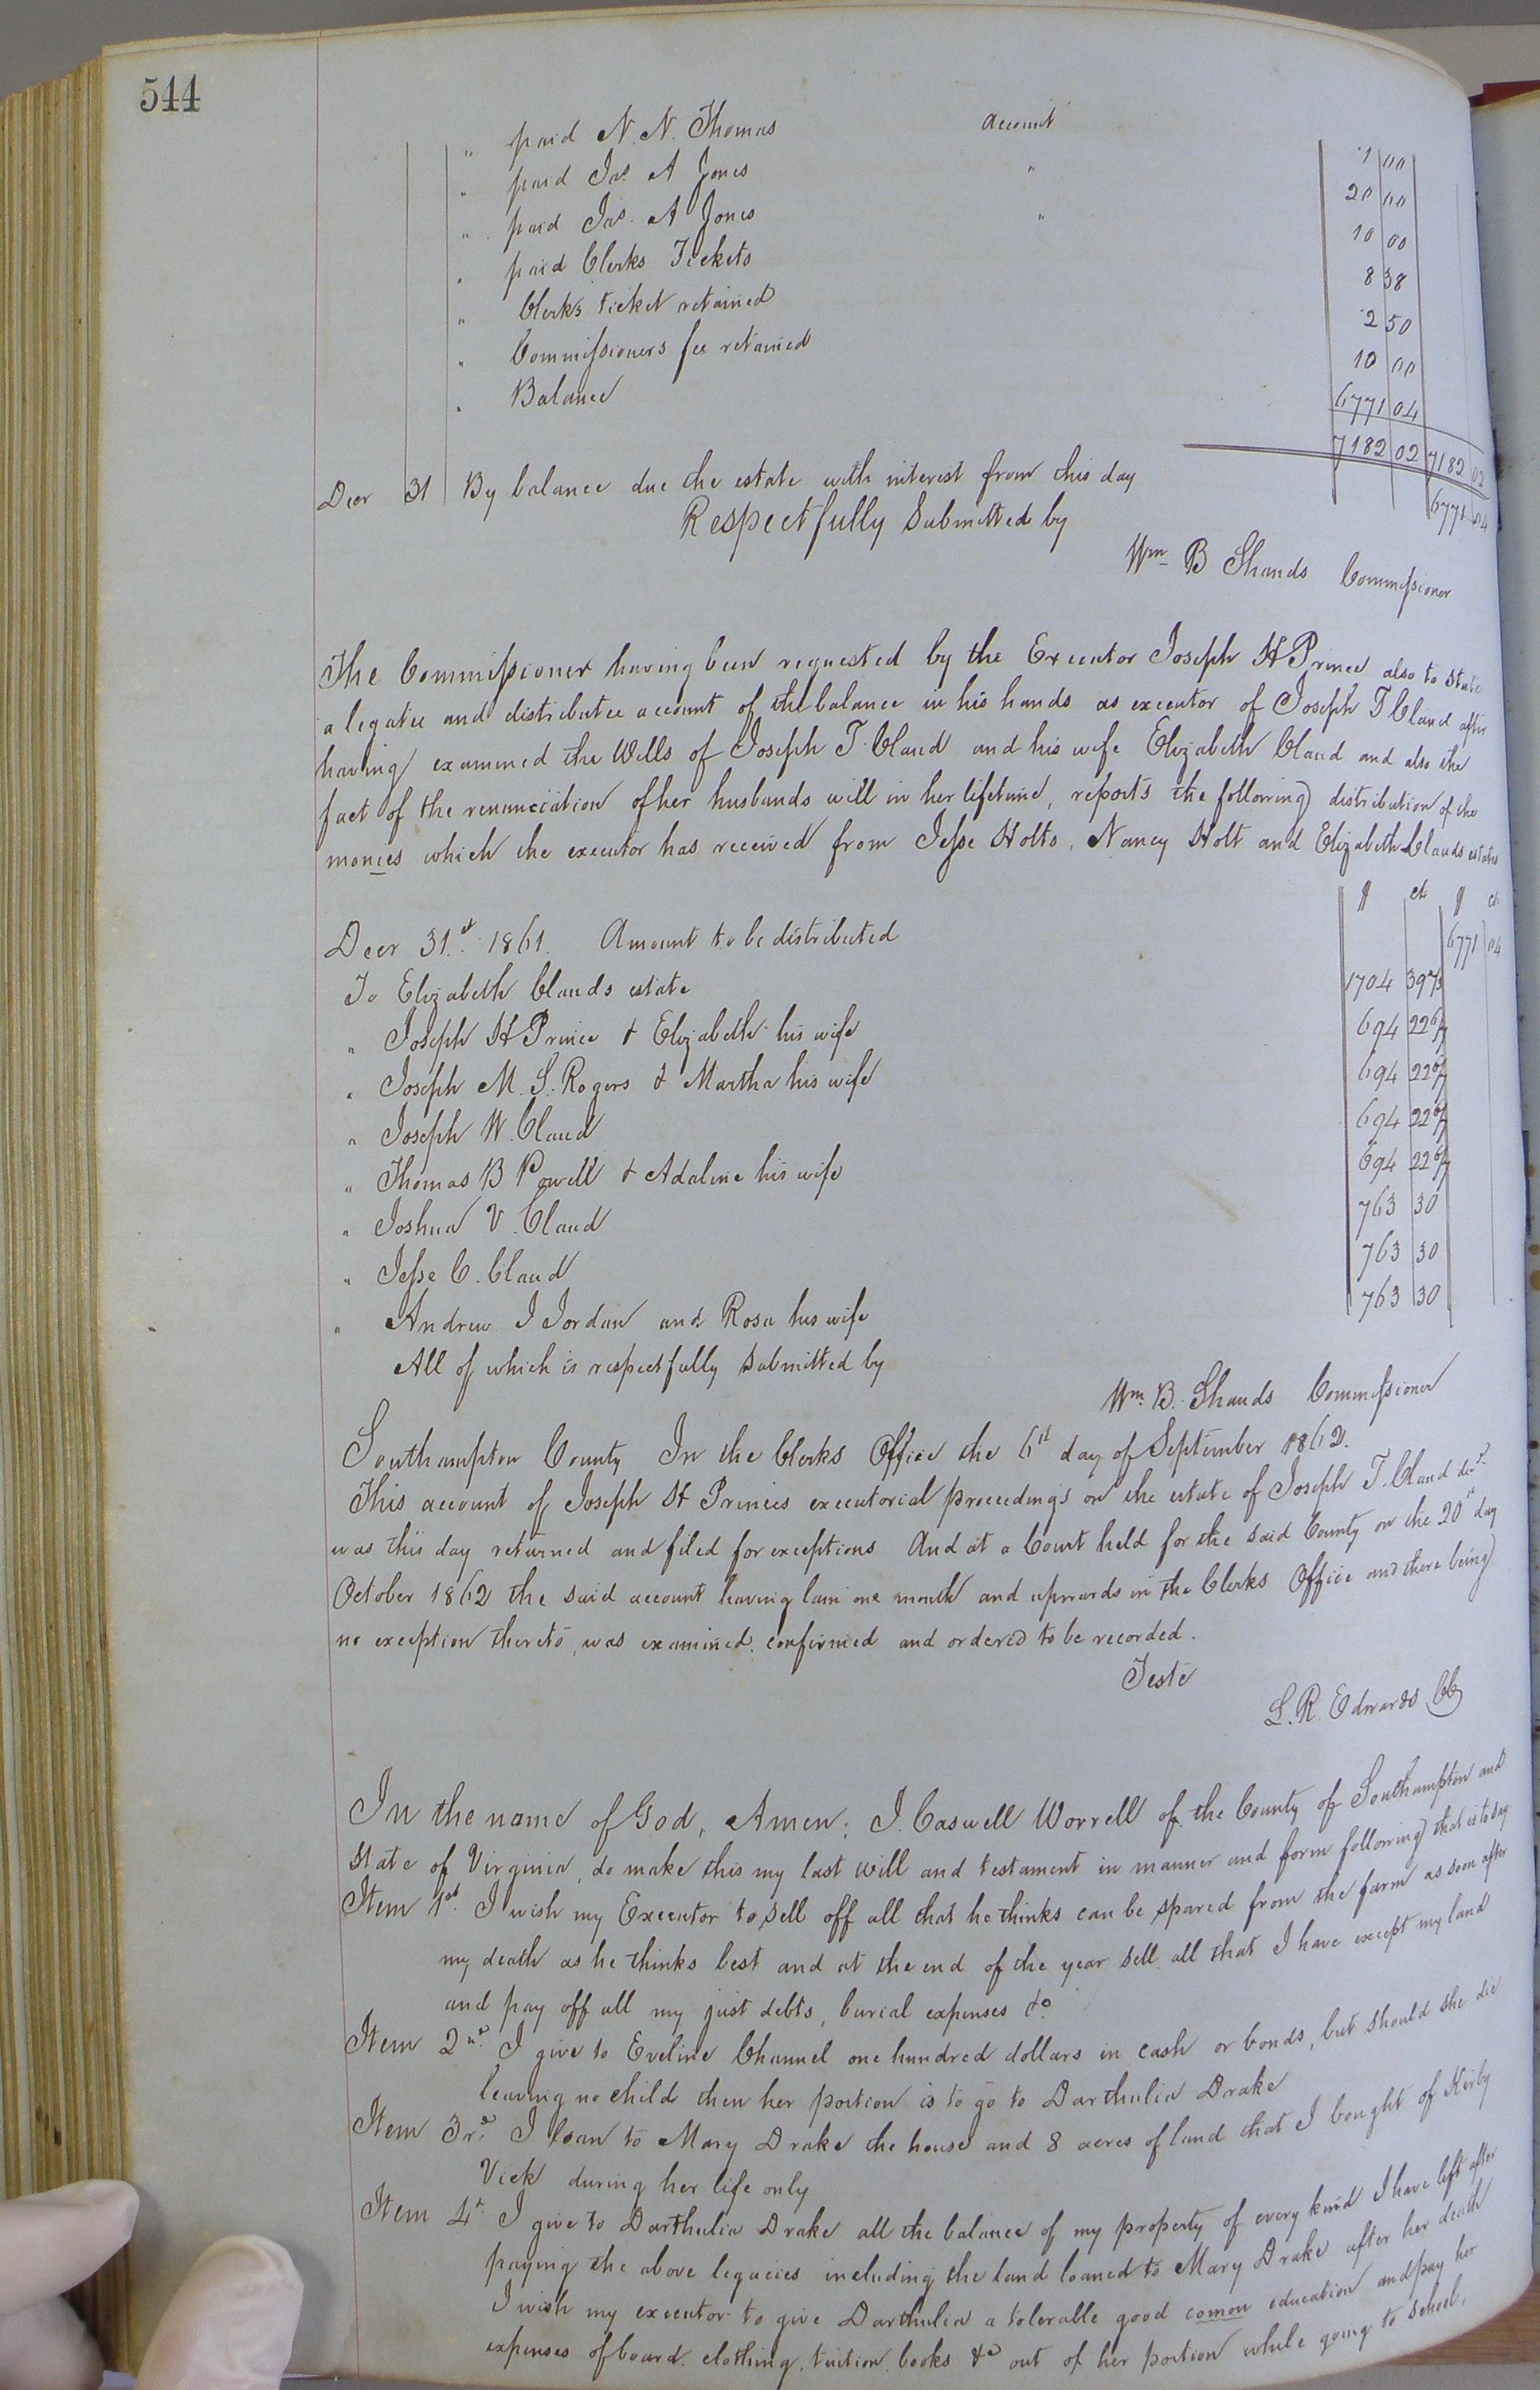 544
" paid N. N. Thomas account 1 00
" paid Jas A Jones " 20 00
" paid Jas. A Jones " 10 00
" paid Clerks Tickets 8 38
" Clerks ticket retained 2 50
" Commissioners fee retained 10 00
" Balance 6771 04
7182 02 7182 02
Decr 31 By balance due the estate with interest from this day 6771 04
Respectfully Submitted by
Wm B Shands Commissioner
The Commissioner having been requested by the Executor Joseph H Prince also to state
a legatee and distributee account of the balance in his hands as executor of Joseph T Claud after
having examined the Wills of Joseph T. Claud and his wife Elizabeth Claud and also the
fact of the renunciation of her husbands will in her lifetime, reports the following distribution of the
monies which the executor has received from Jesse Holts, Nancy Holt and Elizabeth Clauds estates
$ ct $ ct
Decr 31st 1861. Amount to be distributed 6771 04
To Elizabeth Clauds estate 1704 39
" Joseph H Prince & Elizabeth his wife 694 22
" Joseph M. S. Rogers & Martha his wife 694 22
" Joseph W. Claud 694 22
" Thomas B Powell & Adaline his wife 694 22
" Joshua V. Claud 763 30
" Jesse C. Claud 763 30
" Andrew J Jordan and Rosa his wife 763 30
All of which is respectfully submitted by
Wm. B. Shands Commissioner
Southampton County In the Clerks Office the 6th day of September 1862.
This account of Joseph H Princes executorial proceedings on the estate of Joseph T. Claud decd.
was this day returned and filed for exceptions And at a Court held for the said County on the 20th day
October 1862 the said account having lain one month and upwards in the Clerks Office and there being
no exception thereto, was examined, confirmed and ordered to be recorded.
Teste
L. R. Edwards CC
In the name of God, Amen; I. Caswell Worrell of the County of Southampton and
State of Virginia, do make this my last will and testament in manner and form following that is to say
Item 1st. I wish my Executor to sell off all that he thinks can be spared from the farm as soon after
my death as he thinks best and at the end of the year sell all that I have except my land
and pay off all my just debts, burial expenses &c.
Item 2nd. I give to Eveline Channel one hundred dollars in cash or bonds, but should she die
leaving no child then her portion is to go to Darthulia Drake
Item 3rd. I loan to Mary Drake the house and 8 acres of land that I bought of Kirby
Vick during her life only
Item 4th. I give to Darthulia Drake all the balance of my property of every kind I have left after
paying the above legacies including the land loaned to Mary Drake after her death
I wish my executor to give Darthulia a tolerable good comon education and pay her
expenses of board, clothing, tuition, books &c out of her portion while going to school.